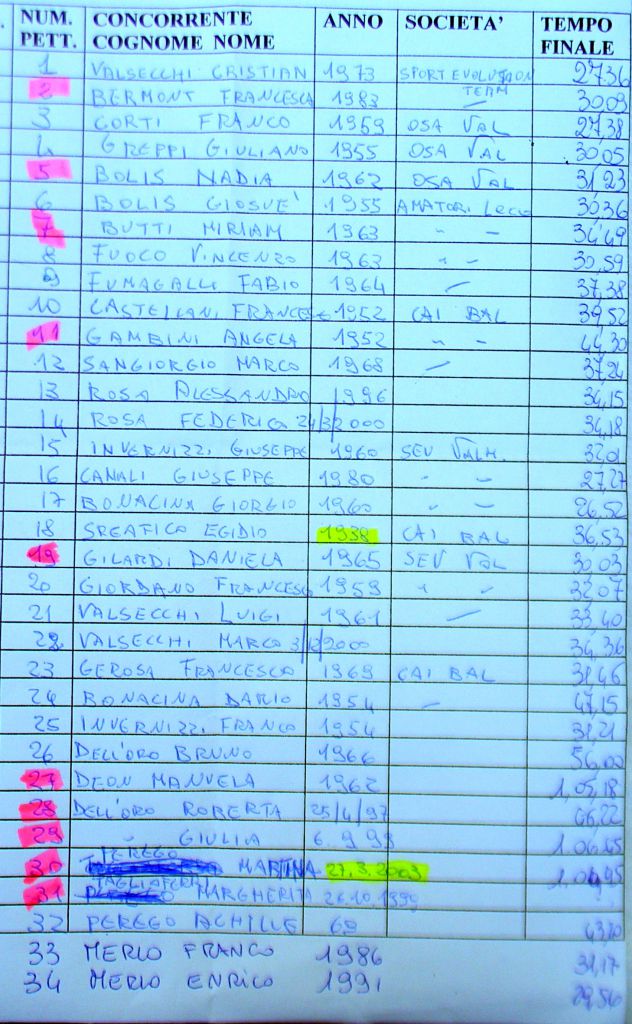 NUM. PETT. CONCORRENTE COGNOME NOME ANNO SOCIETA' TEMPO FINALE
1 VALSECCHI CRISTIAN 1973 SPORT EVOLUTION TEAM 27.36
2 BERMONT FRANCESCA 1983 — 30.09
3 CORTI FRANCO 1959 OSA VAL 27,38
4 GREPPI GIULIANO 1955 OSA VAL 30.05
5 BOLIS NADIA 1962 OSA VAL 31.23
6 BOLIS GIOSUE' 1955 AMATORI LECCO 30.36
7 BUTTI MIRIAM 1963 " " 34,49
8 FUOCO VINCENZO 1963 " " 30,59
9 FUMAGALLI FABIO 1964 — 37,38
10 CASTELLANI FRANCESC 1952 CAI BAL 39,52
11 GAMBINI ANGELA 1952 " " 44,30
12 SANGIORGIO MARCO 1968 — 37,24
13 ROSA ALESSANDRO 1996 34,15
14 ROSA FEDERICA 24/3/2000 34,18
15 INVERNIZZI GIUSEPPE 1960 SEV VALM. 32,01
16 CANALI GIUSEPPE 1980 " " 27,27
17 BONACINA GIORGIO 1960 " " 26,52
18 SREAFICO EGIDIO 1938 CAI BAL 36,53
19 GILARDI DANIELA 1965 SEV VAL 30,03
20 GIORDANO FRANCESCO 1959 " " 32,07
21 VALSECCHI LUIGI 1961 — 33,40
22 VALSECCHI MARCO 3/12/2000 34,36
23 GEROSA FRANCESCO 1969 CAI BAL 31,46
24 BONACINA DARIO 1954 — 47,15
25 INVERNIZZI FRANCO 1954 31,21
26 DELL'ORO BRUNO 1966 56,00
27 DEON MANUELA 1962 1,05,18
28 DELL'ORO ROBERTA 25/4/97 66,22
29 " GIULIA 6.9.98 1.06.45
30 PEREGO MARTINA 27.3.2003
31 TAGLIAFERI MARGHERITA 26.10.1999
32 PEREGO ACHILLE 69
33 MERLO FRANCO 1986 31,17
34 MERLO ENRICO 1991 29,56